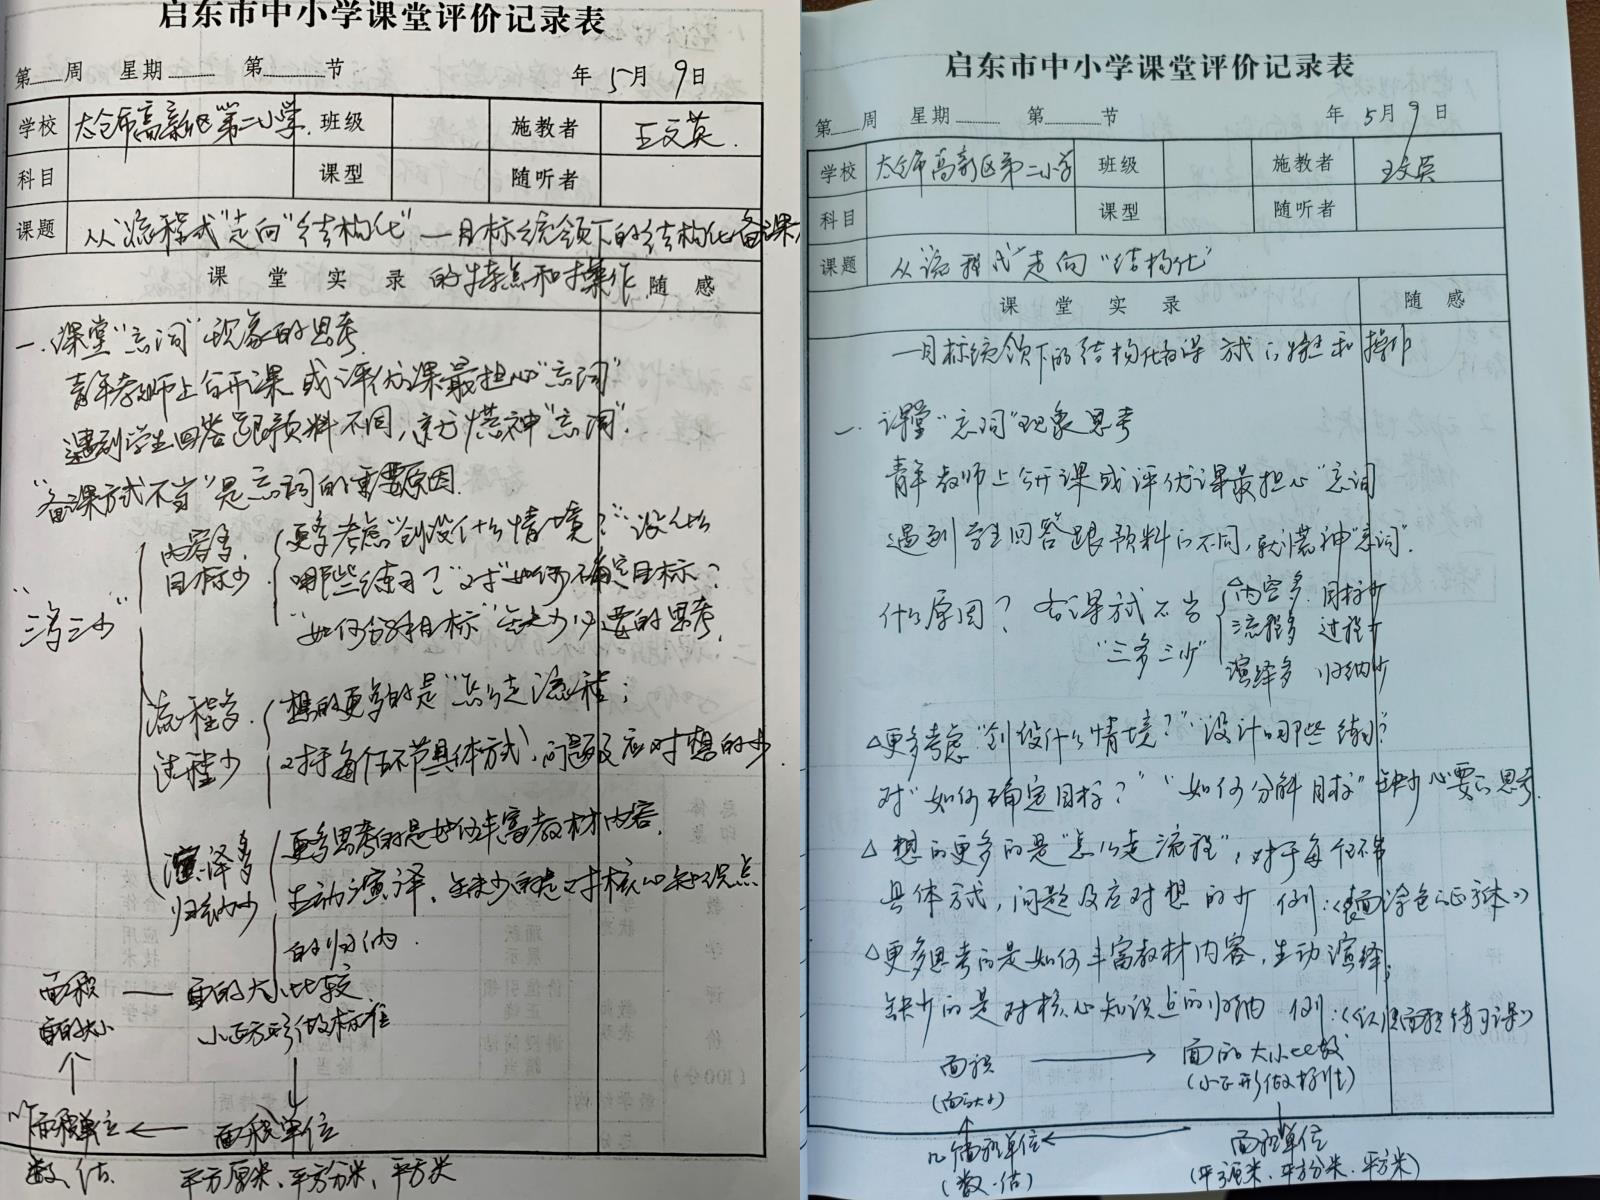 启东市中小学课堂评价记录表
第 周 星期 第 节 年 5月 9日
学校 太仓市高新区第二小学 班级 施教者 王文英
科目 课型 随听者
课题 从“流程式”走向“结构化”—目标统领下的结构化备课
课堂实录 的特点和操作 随感
一.课堂“忘词”现象的思考
青年教师上公开课或评优课最担心“忘词”
遇到学生回答跟预料不同,就慌神“忘词”.
“备课方式不当”是忘词的重要原因.
“三多三少”
内容多,
目标少
更多考虑“创设什么情境?”“设计
哪些练习?”对“如何确定目标?
“如何分解目标”缺少必要的思考.
流程多
过程少
想的更多的是“怎么走流程;
对于每个环节具体方式,问题及应对想的少.
演绎多
归纳少
更多思考的是如何丰富教材内容.
生动演译,缺少的是对核心知识点
的归纳.
面积 — 面的大小比较
面的大小 小正方形做标准
几个面积单位 ← 面积单位
数、估. 平方厘米、平方分米、平方米
启东市中小学课堂评价记录表
第 周 星期 第 节 年 5月 9日
学校 太仓市高新区第二小学 班级 施教者 王文英
科目 课型 随听者
课题 从“流程式”走向“结构化”
课堂实录 随感
—目标统领下的结构化备课方式的特点和操作
一.课堂“忘词”现象思考
青年教师上公开课或评优课最担心“忘词
遇到学生回答跟预料的不同,就慌神“忘词”.
什么原因?备课方式不当
“三多三少”
内容多.目标少
流程多 过程少
演绎多 归纳少
△更多考虑“创设什么情境?”“设计哪些练习?”
对“如何确定目标?”“如何分解目标”缺少必要的思考.
△想的更多的是“怎么走流程”,对于每个环节
具体方式,问题及应对想的少 例:《表面涂色的正方体》
△更多思考的是如何丰富教材内容,生动演绎,
缺少的是对核心知识点的归纳 例:《认识面积练习课》
面积 → 面的大小比较
(面的大小) (小正方形做标准)
几个面积单位 ← 面积单位
(数.估) (平方厘米、平方分米.平方米)